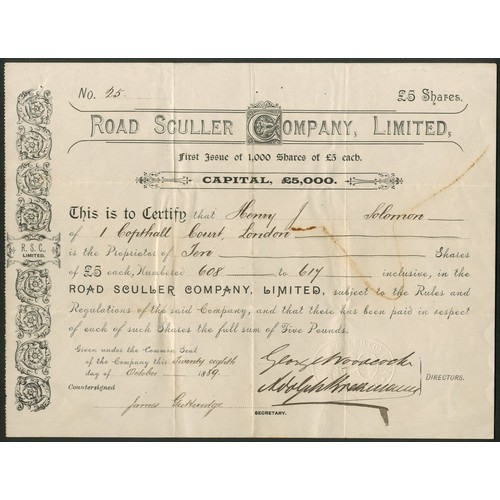 No. 25 £5 Shares.
ROAD SCULLER COMPANY, LIMITED,
First Issue of 1,000 Shares of £5 each.
CAPITAL, £5,000.
This is to Certify that Henry J Solomon
of 1 Copthall Court, London
is the Proprietor of Ten Shares
of £5 each, Numbered 608 to 617 inclusive, in the
ROAD SCULLER COMPANY, LIMITED, subject to the Rules and
Regulations of the said Company, and that there has been paid in respect
of each of such Shares the full sum of Five Pounds.
R. S. C.,
LIMITED.
Given under the Common Seal
of the Company this Twenty eighth
day of October 1889.
George Woodcock
Adolph
DIRECTORS.
Countersigned
James Gutteridge
SECRETARY.